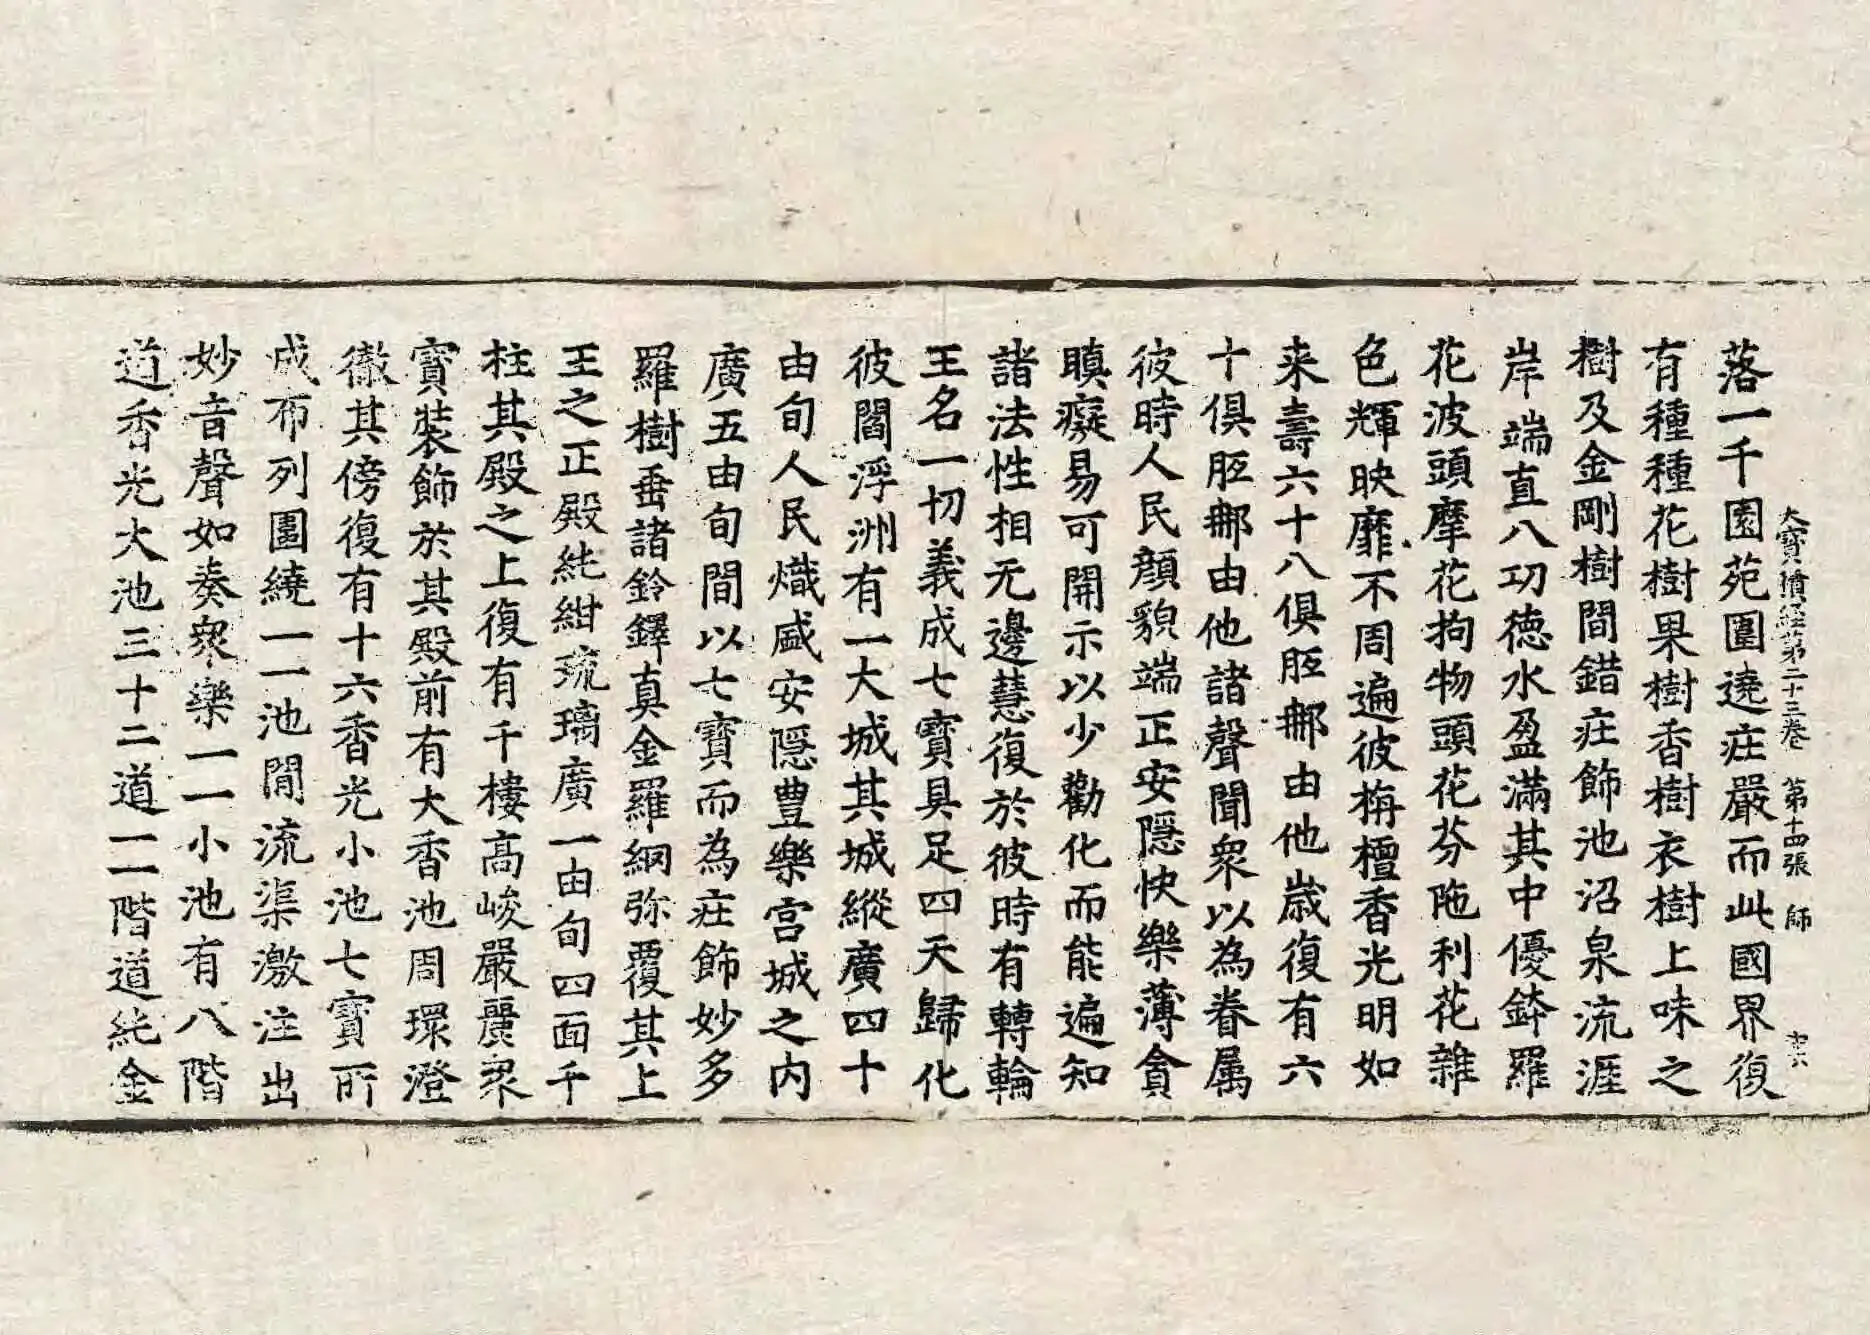 大寶積經第二十三卷 第十四張 師
落一千園苑圍遶庄嚴而此國界復
有種種花樹果樹香樹衣樹上味之
樹及金剛樹樹間錯庄飾池沼泉流涯
岸端直八功德水盈滿其中優鉢羅
花波頭摩花拘物頭花芬陁利花雜
色輝映靡不周遍彼栴檀香光明如
来壽六十八俱胝那由他歲復有六
十俱胝那由他諸聲聞衆以為眷属
彼時人民顔貌端正安隱快樂薄貪
瞋癡易可開示以少勸化而能遍知
諸法性相无邊慧復於彼時有轉輪
王名一切義成七寶具足四天歸化
彼閻浮洲有一大城其城縱廣四十
由旬人民熾盛安隱豊樂宫城之内
廣五由旬間以七寶而為庄飾妙多
羅樹垂諸鈴鐸真金羅網弥覆其上
王之正殿純紺琉璃廣一由旬四面千
柱其殿之上復有千樓高峻嚴麗衆
寶裝飾於其殿前有大香池周環澄
徹其傍復有十六香光小池七寶所
成布列圍繞一一池間流渠激注出
妙音聲如奏衆樂一一小池有八階
道香光大池三十二道一一階道純金